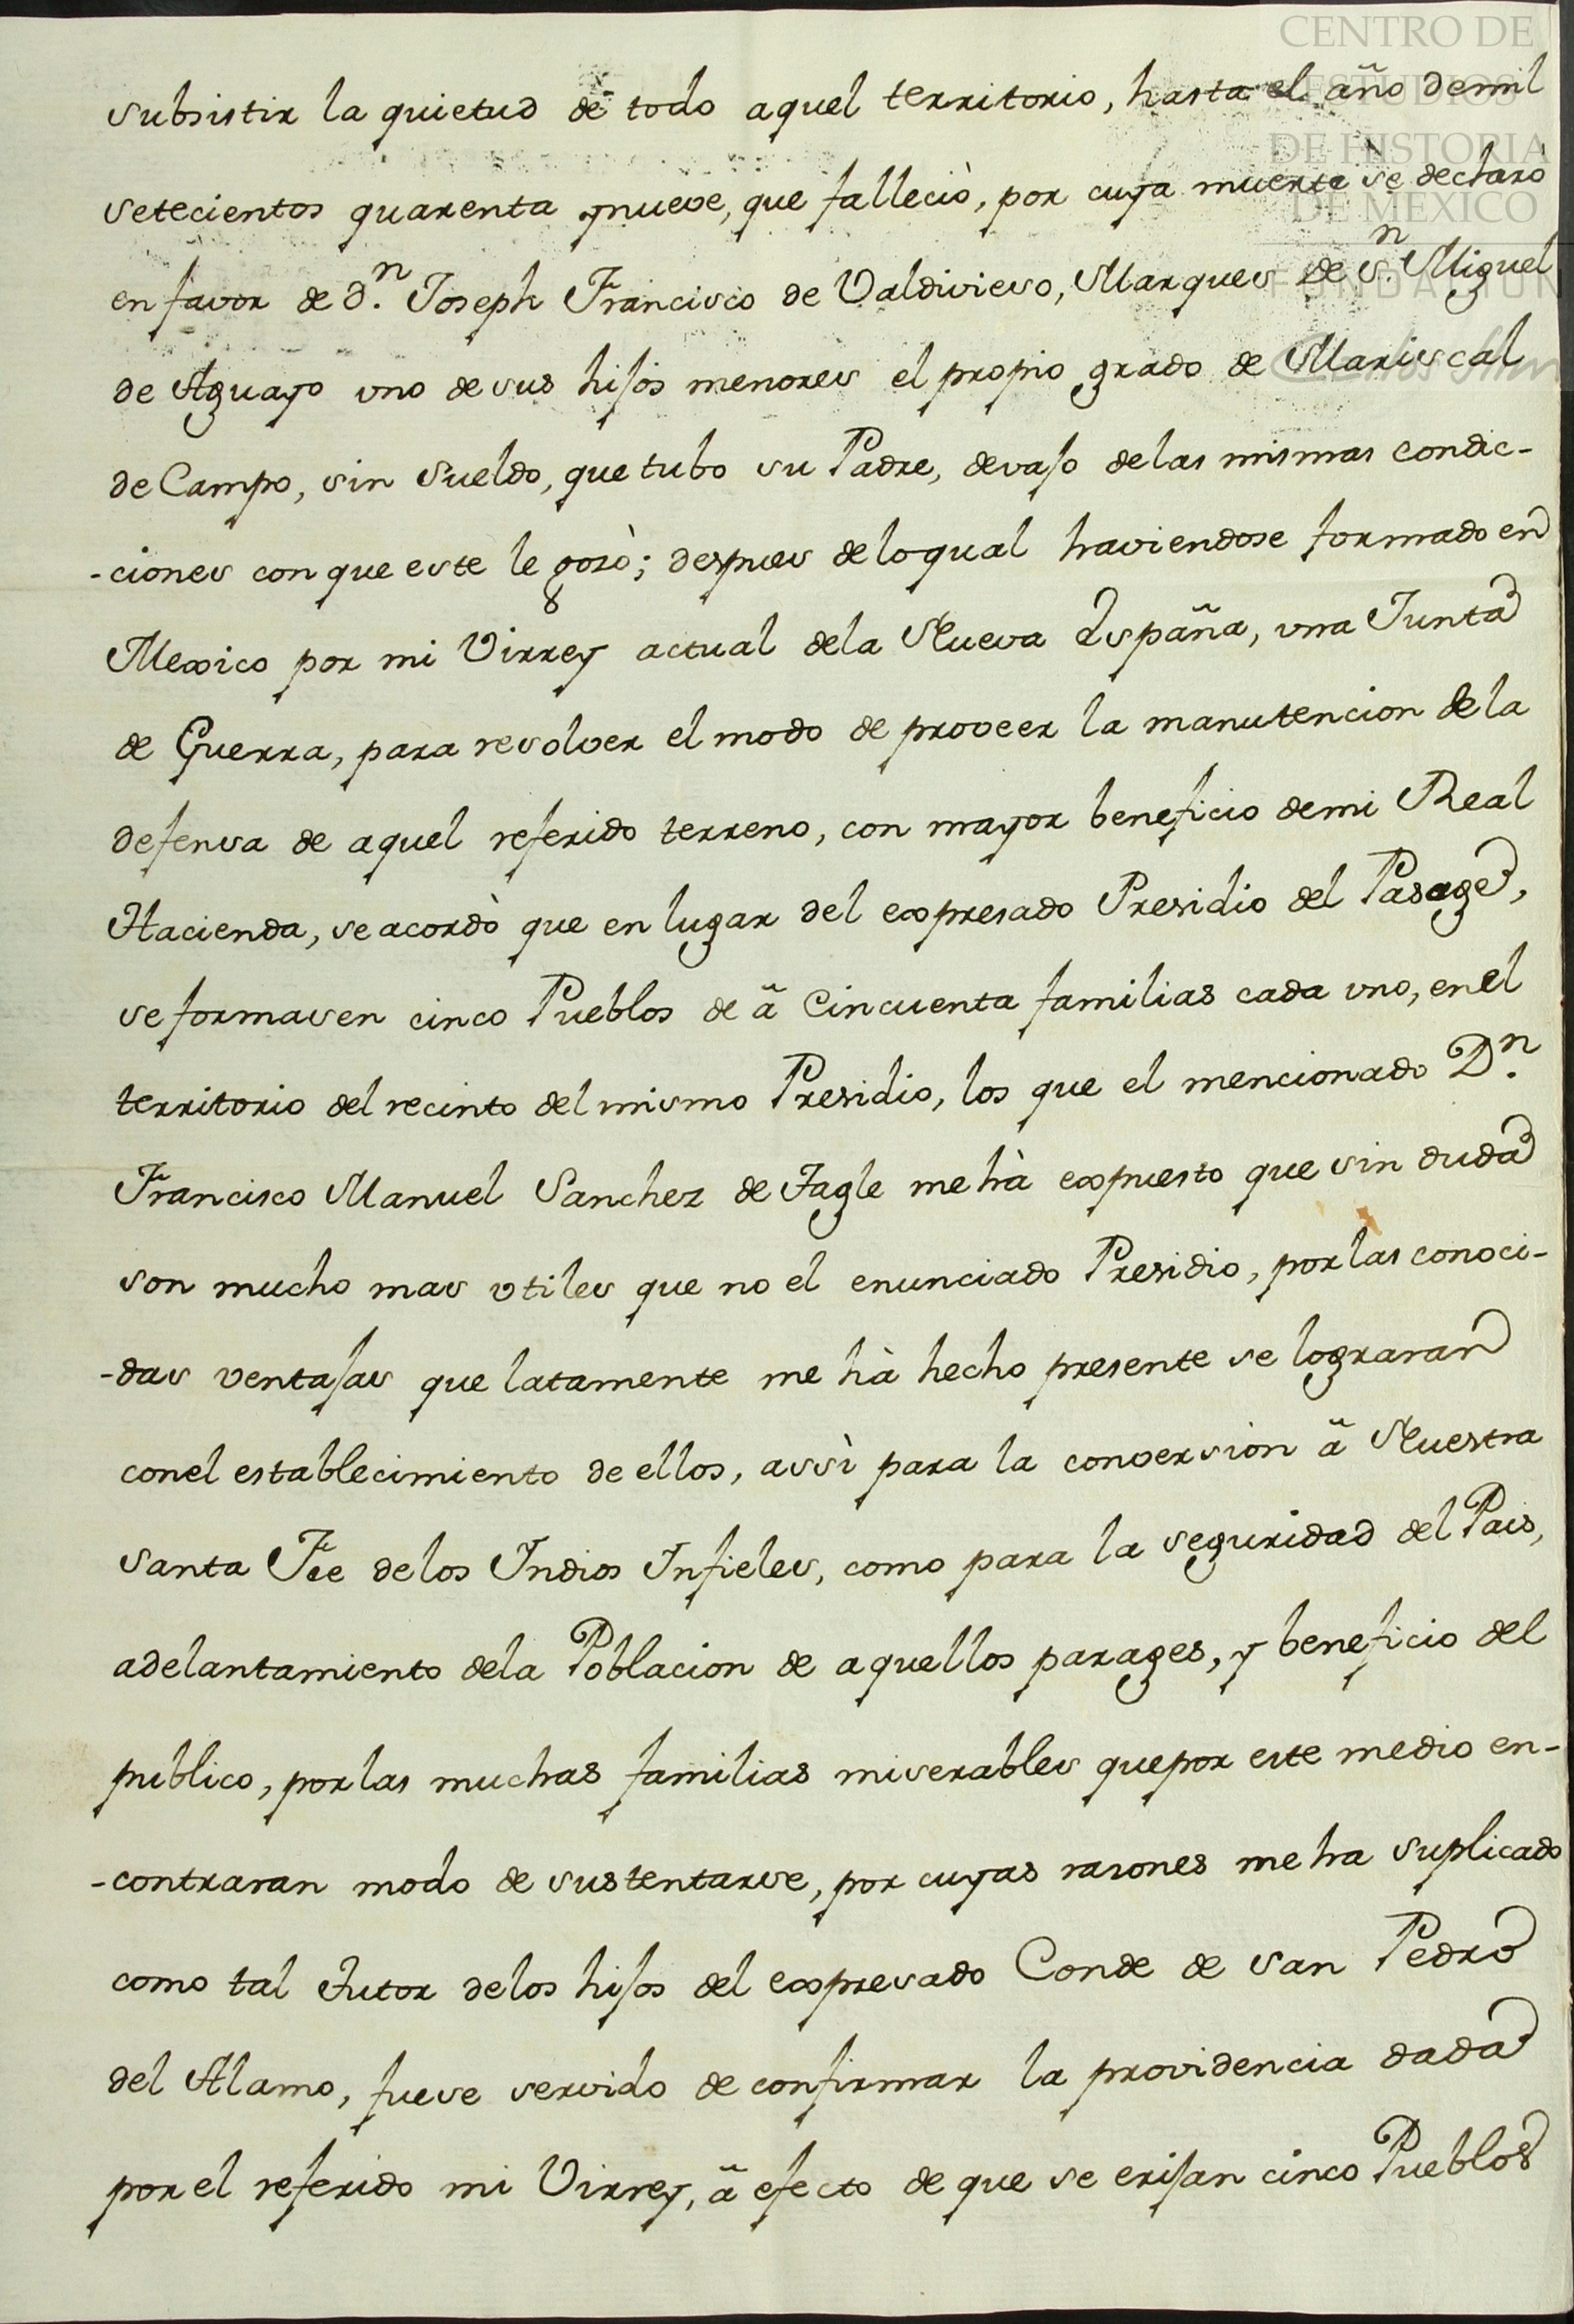 CENTRO DE
ESTUDIOS
DE HISTORIA
DE MEXICO
FUNDACION
subsistir la quietud de todo aquel territorio, hasta el año de mil
setecientos quarenta ynueve, que falleciò, por cuya muerte se declarò
en favor de d.n Joseph Francisco de Valdivieso, Marques de S.n Miguel
de Aguayo uno de sus hijos menores el propio grado de Mariscal
de Campo, sin sueldo, que tubo su Padre, devajo delas mismas condic-
-ciones con que este le gozò; despues delo qual haviendose formado en
Mexico por mi Virrey actual dela Nueva España, una Junta
de Guerra, para resolver el modo de proveer la manutencion dela
defensa de aquel referido terreno, con mayor beneficio demi Real
Hacienda, se acordò que en lugar del expresado Presidio del Pasage,
se formasen cinco Pueblos de â Cincuenta familias cada uno, en el
territorio del recinto del mismo Presidio, los que el mencionado D.n
Francisco Manuel Sanchez de Tagle me hà expuesto que sin duda
son mucho mas utiles que no el enunciado Presidio, por las conoci-
-das ventajas que latamente me hà hecho presente se lograran
con el establecimiento de ellos, assì para la conversion â Nuestra
Santa Fee delos Indios Infieles, como para la seguridad del Pais,
adelantamiento dela Poblacion de aquellos parages, y beneficio del
publico, por las muchas familias miserables que por este medio en-
-contraran modo de sustentarse, por cuyas razones me ha suplicado
como tal Tutor delos hijos del expresado Conde de San Pedro
del Alamo, fuese servido de confirmar la providencia dada
por el referido mi Virrey, â efecto de que se erijan cinco Pueblos